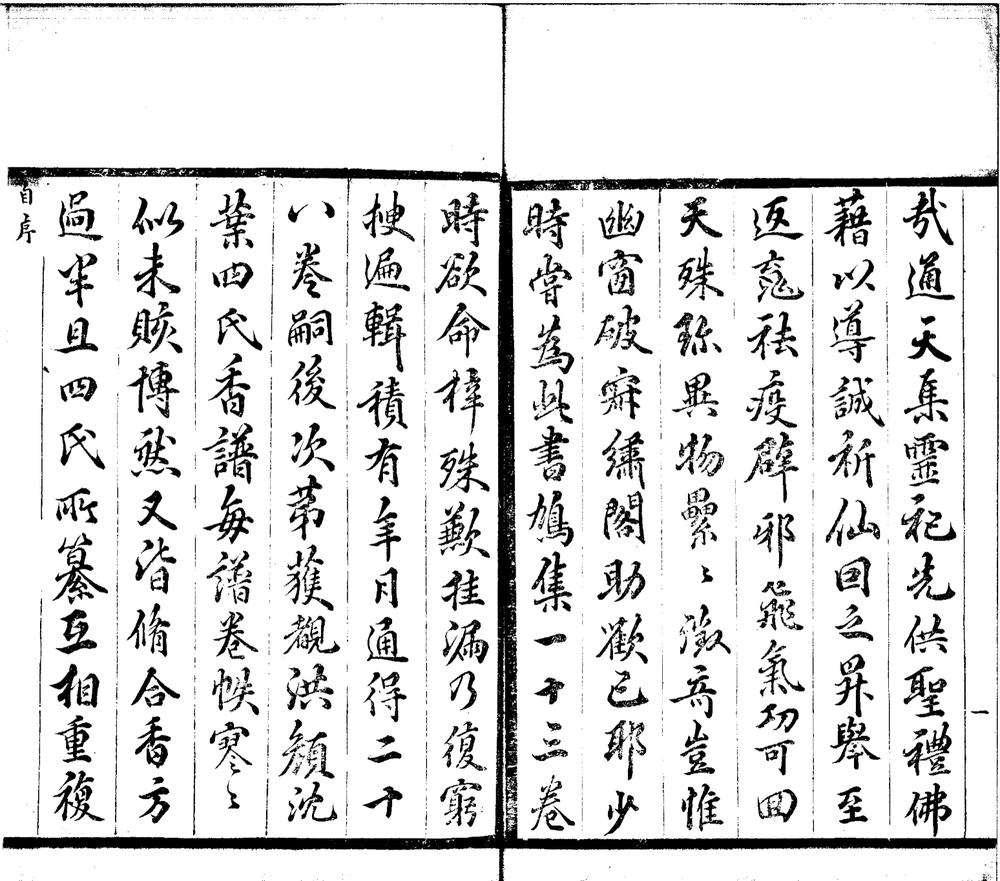 哉通天集靈祀先供聖禮佛
藉以導誠祈仙因之昇舉至
返魂祛疫辟邪飛氣功可回
天殊珍異物纍〻徵奇豈惟
幽窗破寂繡閣助歡已耶少
時嘗為此書鳩集一十三卷
時欲命梓殊歉挂漏乃復窮
搜遍輯積有年月通得二十
八卷嗣後次第獲覩洪顏沈
葉四氏香譜每譜卷帙寥〻
似未賅博然又皆脩合香方
過半且四氏所纂互相重複
自序
一